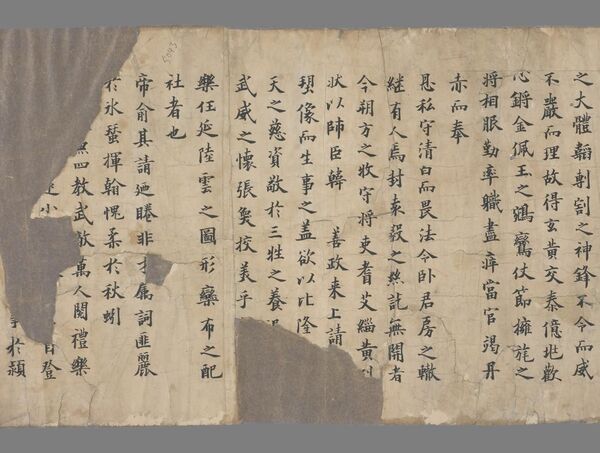 之大體韜剸割之神鋒不令而威
不嚴而理故得玄黄交泰億兆歡
心鏘金佩玉之鵷鸞仗節擁旄之
將相服勤率職盡瘁當官竭丹
赤而奉
恩私守清白而畏法令卧君房之轍
継有人焉封索毅之㷱詎無聞者
今朔方之牧守將吏耆艾緇黄
状以帥臣韓 善政来上請
像而生事之盖欲以比隆
天之慈資敬於三牲之養
武威之懐張奐挍美乎
樂任延陸雲之圖形欒布之配
社者也
帝俞其請廼睠非才属詞匪麗
於氷蚕揮翰愧柔於秋蚓
四教武敵萬人閱禮樂
小 自登
於潁
5043